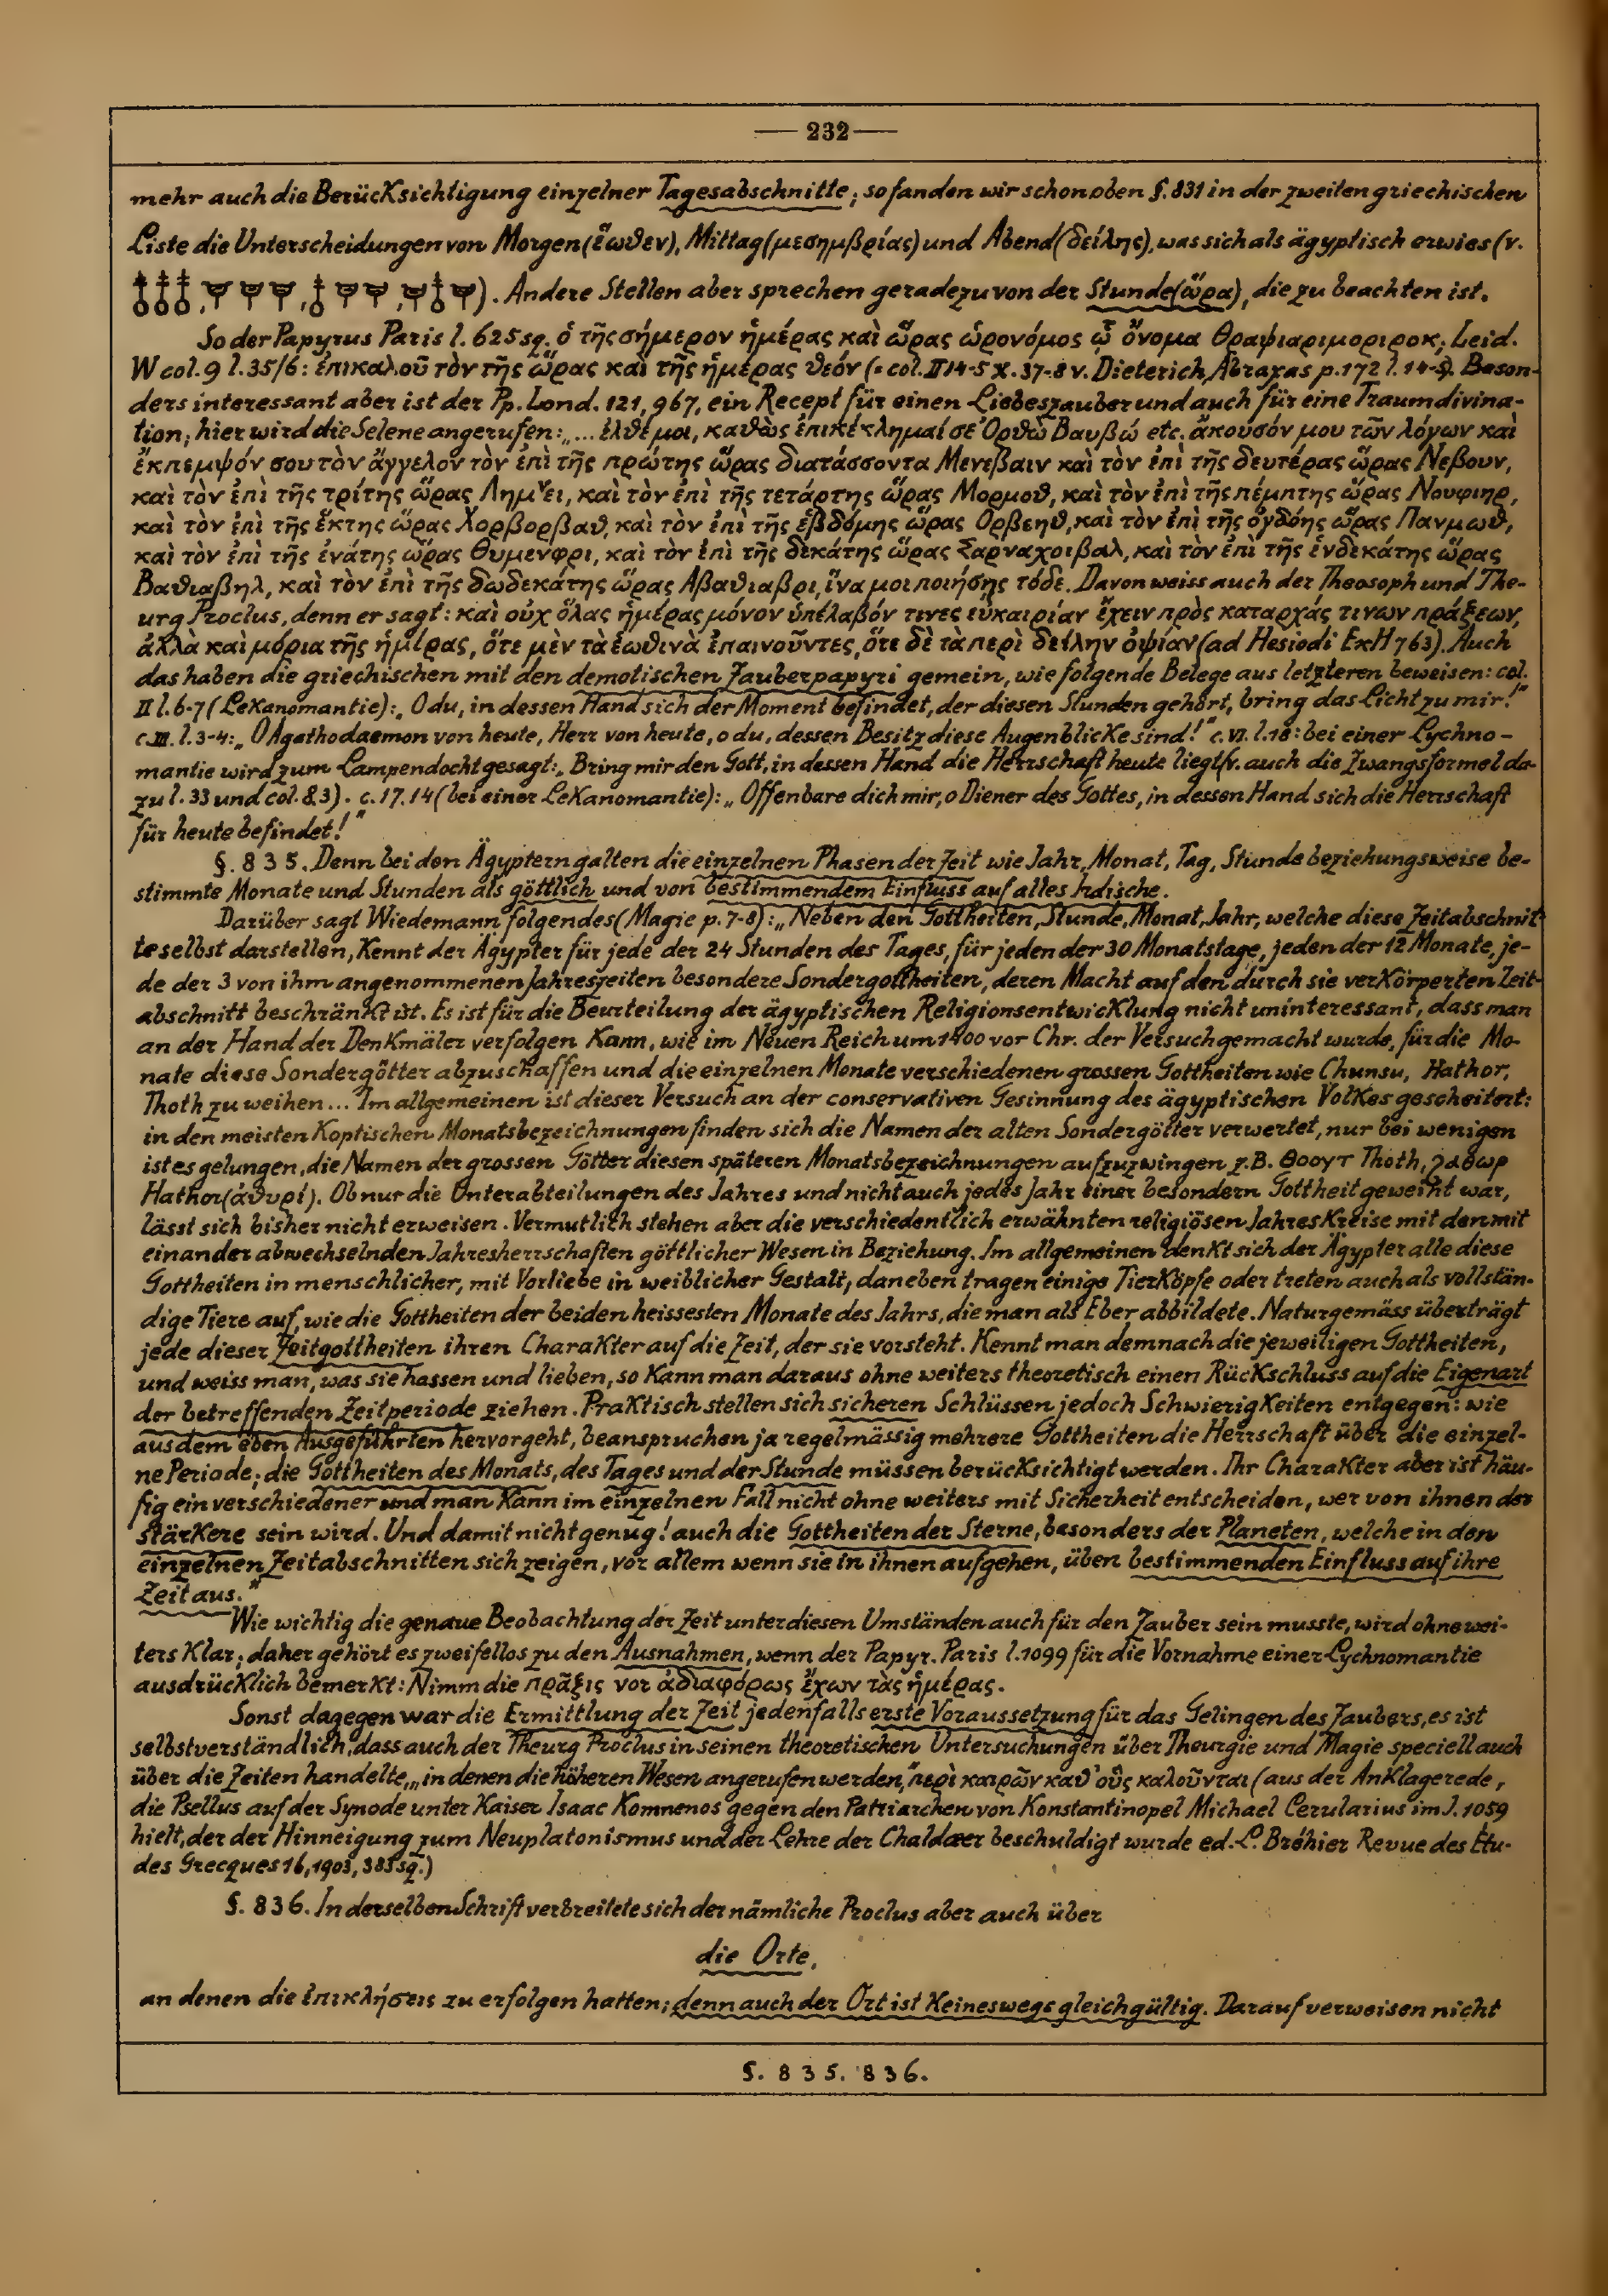 — 232 —
mehr auch die Berücksichtigung einzelner Tagesabschnitte; so fanden wir schon oben §. 831 in der zweiten griechischen
Liste die Unterscheidungen von Morgen (ἕωθεν), Mittag (μεσημβρίας) und Abend (δείλης), was sich als ägyptisch erwies (v.
). Andere Stellen aber sprechen geradezu von der Stunde (ὥρα), die zu beachten ist.
So der Papyrus Paris l. 625 sq. ὁ τῆς σήμερον ἡμέρας καὶ ὥρας ὡρονόμος ᾧ ὄνομα Θραψιαριμοριροκ; Leid.
W col. 9 l. 35/6: ἐπικαλοῦ τὸν τῆς ὥρας καὶ τῆς ἡμέρας θεόν (= col. II 14-5 X. 37-8 v. Dieterich, Abraxas p. 172 l. 14-5). Beson-
ders interessant aber ist der Pp. Lond. 121, 967, ein Recept für einen Liebeszauber und auch für eine Traumdivina-
tion; hier wird die Selene angerufen: „... ἐλθέ μοι, καθὼς ἐπικέκλημαί σε Ὀρθὼ Βαυβώ etc. ἄκουσόν μου τῶν λόγων καὶ
ἔκπεμψόν σου τὸν ἄγγελον τὸν ἐπὶ τῆς πρώτης ὥρας διατάσσοντα Μενεβαιν καὶ τὸν ἐπὶ τῆς δευτέρας ὥρας Νεβουν,
καὶ τὸν ἐπὶ τῆς τρίτης ὥρας Λημνει, καὶ τὸν ἐπὶ τῆς τετάρτης ὥρας Μορμοθ, καὶ τὸν ἐπὶ τῆς πέμπτης ὥρας Νουφιηρ,
καὶ τὸν ἐπὶ τῆς ἕκτης ὥρας Χορβορβαθ, καὶ τὸν ἐπὶ τῆς ἑβδόμης ὥρας Ορβεηθ, καὶ τὸν ἐπὶ τῆς ὀγδόης ὥρας Πανμωθ,
καὶ τὸν ἐπὶ τῆς ἐνάτης ὥρας Θυμενφρι, καὶ τὸν ἐπὶ τῆς δεκάτης ὥρας Σαρναχοιβαλ, καὶ τὸν ἐπὶ τῆς ἑνδεκάτης ὥρας
Βαθιαβηλ, καὶ τὸν ἐπὶ τῆς δωδεκάτης ὥρας Αβαθιαβρι, ἵνα μοι ποιήσῃς τόδε. Davon weiss auch der Theosoph und The-
urg Proclus, denn er sagt: καὶ οὐχ ὅλας ἡμέρας μόνον ὑπέλαβόν τινες εὐκαιρίαν ἔχειν πρὸς καταρχάς τινων πράξεων,
ἀλλὰ καὶ μόρια τῆς ἡμέρας, ὅτε μὲν τὰ ἑωθινὰ ἐπαινοῦντες, ὅτε δὲ τὰ περὶ δείλην ὀψίαν (ad Hesiodi ExH 763). Auch
das haben die griechischen mit den demotischen Zauberpapyri gemein, wie folgende Belege aus letzteren beweisen: col.
II l. 6-7 (Lekanomantie): „O du, in dessen Hand sich der Moment befindet, der diesen Stunden gehört, bring das Licht zu mir!"
c. III. l. 3-4: „O Agathodaemon von heute, Herr von heute, o du, dessen Besitz diese Augenblicke sind!" c. VI. l. 18: bei einer Lychno-
mantie wird zum Lampendocht gesagt: „Bring mir den Gott, in dessen Hand die Herrschaft heute liegt (v. auch die Zwangsformel da-
zu l. 33 und col. 8.3). c. 17. 14 (bei einer Lekanomantie): „Offenbare dich mir, o Diener des Gottes, in dessen Hand sich die Herrschaft
für heute befindet!"
§. 835. Denn bei den Ägyptern galten die einzelnen Phasen der Zeit wie Jahr, Monat, Tag, Stunde beziehungsweise be-
stimmte Monate und Stunden als göttlich und von bestimmendem Einfluss auf alles Irdische.
Darüber sagt Wiedemann folgendes (Magie p. 7-8): „Neben den Gottheiten, Stunde, Monat, Jahr, welche diese Zeitabschnit-
te selbst darstellen, kennt der Ägypter für jede der 24 Stunden des Tages, für jeden der 30 Monatstage, jeden der 12 Monate, je-
de der 3 von ihm angenommenen Jahreszeiten besondere Sondergottheiten, deren Macht auf den durch sie verkörperten Zeit-
abschnitt beschränkt ist. Es ist für die Beurteilung der ägyptischen Religionsentwicklung nicht uninteressant, dass man
an der Hand der Denkmäler verfolgen kann, wie im Neuen Reich um 1400 vor Chr. der Versuch gemacht wurde, für die Mo-
nate diese Sondergötter abzuschaffen und die einzelnen Monate verschiedenen grossen Gottheiten wie Chunsu, Hathor,
Thoth zu weihen... Im allgemeinen ist dieser Versuch an der conservativen Gesinnung des ägyptischen Volkes gescheitert:
in den meisten koptischen Monatsbezeichnungen finden sich die Namen der alten Sondergötter verwertet, nur bei wenigen
ist es gelungen, die Namen der grossen Götter diesen späteren Monatsbezeichnungen aufzuzwingen z.B. ⲑⲟⲟⲩⲧ Thoth, ϩⲁⲑⲱⲣ
Hathor (ἀθυρί). Ob nur die Unterabteilungen des Jahres und nicht auch jedes Jahr einer besondern Gottheit geweiht war,
lässt sich bisher nicht erweisen. Vermutlich stehen aber die verschiedentlich erwähnten religiösen Jahreskreise mit den mit
einander abwechselnden Jahresherrschaften göttlicher Wesen in Beziehung. Im allgemeinen denkt sich der Ägypter alle diese
Gottheiten in menschlicher, mit Vorliebe in weiblicher Gestalt, daneben tragen einige Tierköpfe oder treten auch als vollstän-
dige Tiere auf, wie die Gottheiten der beiden heissesten Monate des Jahrs, die man als Eber abbildete. Naturgemäss überträgt
jede dieser Zeitgottheiten ihren Charakter auf die Zeit, der sie vorsteht. Kennt man demnach die jeweiligen Gottheiten,
und weiss man, was sie hassen und lieben, so kann man daraus ohne weiters theoretisch einen Rückschluss auf die Eigenart
der betreffenden Zeitperiode ziehen. Praktisch stellen sich sicheren Schlüssen jedoch Schwierigkeiten entgegen: wie
aus dem eben Ausgeführten hervorgeht, beanspruchen ja regelmässig mehrere Gottheiten die Herrschaft über die einzel-
ne Periode; die Gottheiten des Monats, des Tages und der Stunde müssen berücksichtigt werden. Ihr Charakter aber ist häu-
fig ein verschiedener und man kann im einzelnen Fall nicht ohne weiters mit Sicherheit entscheiden, wer von ihnen der
stärkere sein wird. Und damit nicht genug! auch die Gottheiten der Sterne, besonders der Planeten, welche in den
einzelnen Zeitabschnitten sich zeigen, vor allem wenn sie in ihnen aufgehen, üben bestimmenden Einfluss auf ihre
Zeit aus."
Wie wichtig die genaue Beobachtung der Zeit unter diesen Umständen auch für den Zauber sein musste, wird ohne wei-
ters klar; daher gehört es zweifellos zu den Ausnahmen, wenn der Papyr. Paris l. 1099 für die Vornahme einer Lychnomantie
ausdrücklich bemerkt: Nimm die πρᾶξις vor ἀδιαφόρως ἔχων τὰς ἡμέρας.
Sonst dagegen war die Ermittlung der Zeit jedenfalls erste Voraussetzung für das Gelingen des Zaubers, es ist
selbstverständlich, dass auch der Theurg Proclus in seinen theoretischen Untersuchungen über Theurgie und Magie speciell auch
über die Zeiten handelte, „in denen die höheren Wesen angerufen werden," περὶ καιρῶν καθ' οὓς καλοῦνται (aus der Anklagerede,
die Psellus auf der Synode unter Kaiser Isaac Komnenos gegen den Patriarchen von Konstantinopel Michael Cerularius im J. 1059
hielt, der der Hinneigung zum Neuplatonismus und der Lehre der Chaldæer beschuldigt wurde ed. L. Bréhier Revue des Étu-
des Grecques 16, 1903, 385 sq.)
§. 836. In derselben Schrift verbreitete sich der nämliche Proclus aber auch über
die Orte,
an denen die ἐπικλήσεις zu erfolgen hatten; denn auch der Ort ist keineswegs gleichgültig. Darauf verweisen nicht
§. 835. 836.